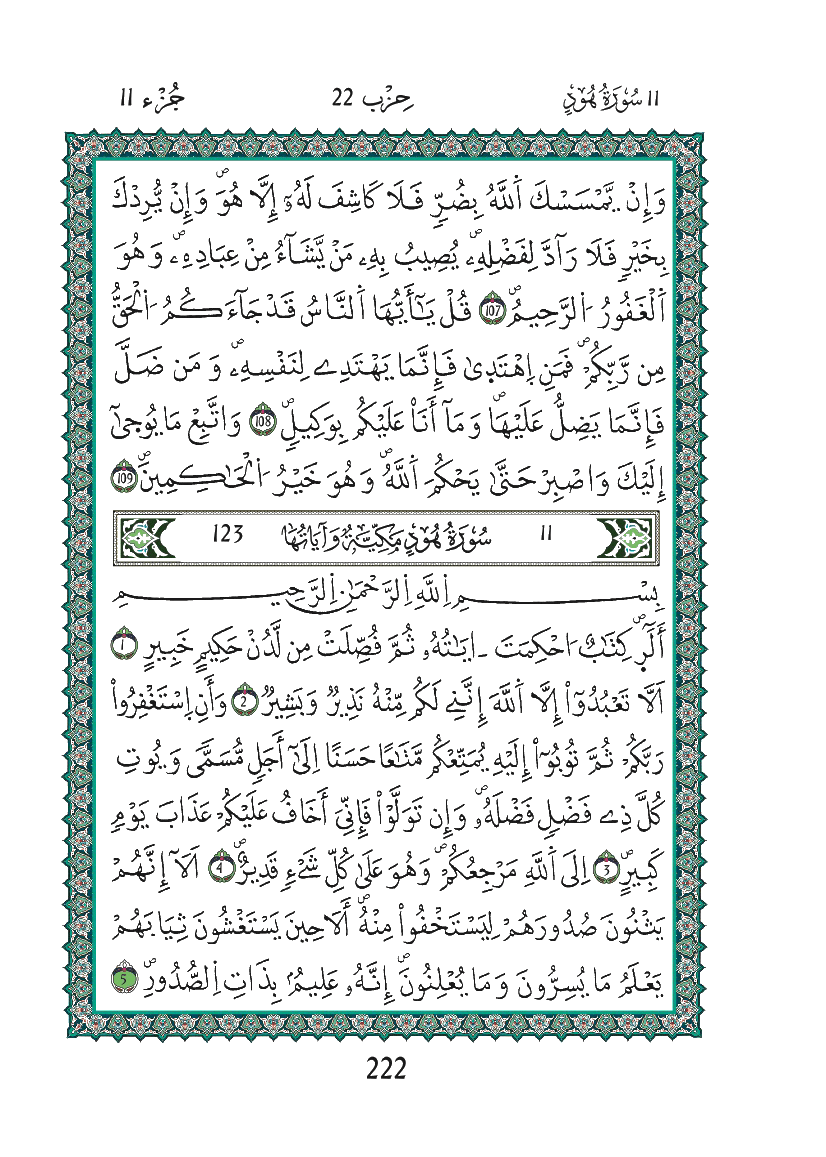 11 سُورَةُ هُودٍ حِزْب 22 جُزْء 11
وَإِنْ يَّمْسَسْكَ اَ۬للَّهُ بِضُرّٖ فَلَا كَاشِفَ لَهُۥٓ إِلَّا هُوَۖ وَإِنْ يُّرِدْكَ
بِخَيْرٖ فَلَا رَآدَّ لِفَضْلِهِۦۖ يُصِيبُ بِهِۦ مَنْ يَّشَآءُ مِنْ عِبَادِهِۦۖ وَهُوَ
اَ۬لْغَفُورُ اُ۬لرَّحِيمُۖ 107 قُلْ يَٰٓأَيُّهَا اَ۬لنَّاسُ قَدْ جَآءَكُمُ اُ۬لْحَقُّ
مِن رَّبِّكُمْۖ فَمَنِ اِ۪هْتَد۪ىٰ فَإِنَّمَا يَهْتَدِے لِنَفْسِهِۦۖ وَمَن ضَلَّ
فَإِنَّمَا يَضِلُّ عَلَيْهَاۖ وَمَآ أَنَا۠ عَلَيْكُم بِوَكِيلٖۖ 108 وَاتَّبِعْ مَا يُوح۪ىٰٓ
إِلَيْكَ وَاصْبِرْ حَتَّىٰ يَحْكُمَ اَ۬للَّهُۖ وَهُوَ خَيْرُ اُ۬لْحَٰكِمِينَۖ 109
11 سُورَةُ هُودٍ مَكِّيَّةٌ وَآيَاتُهَا 123
بِسْمِ اِ۬للَّهِ اِ۬لرَّحْمَٰنِ اِ۬لرَّحِيمِ
أَلَٓر۪ۖ كِتَٰبٌ ا۟حْكِمَتَ ـ ايَٰتُهُۥ ثُمَّ فُصِّلَتْ مِن لَّدُنْ حَكِيمٍ خَبِيرٍ 1
اَلَّا تَعْبُدُوٓاْ إِلَّا اَ۬للَّهَ إِنَّنِے لَكُم مِّنْهُ نَذِيرٞ وَبَشِيرٞ 2 وَأَنِ اِ۪سْتَغْفِرُواْ
رَبَّكُمْ ثُمَّ تُوبُوٓاْ إِلَيْهِ يُمَتِّعْكُم مَّتَٰعًا حَسَنًا إِلَىٰٓ أَجَلٖ مُّسَمّٗى وَيُوتِ
كُلَّ ذِے فَضْلٖ فَضْلَهُۥۖ وَإِن تَوَلَّوْاْ فَإِنِّيَ أَخَافُ عَلَيْكُمْ عَذَابَ يَوْمٖ
كَبِيرٍۖ 3 اِلَى اَ۬للَّهِ مَرْجِعُكُمْۖ وَهُوَ عَلَىٰ كُلِّ شَےْءٖ قَدِيرٌۖ 4 اَلَآ إِنَّهُمْ
يَثْنُونَ صُدُورَهُمْ لِيَسْتَخْفُواْ مِنْهُۖ أَلَا حِينَ يَسْتَغْشُونَ ثِيَابَهُمْ
يَعْلَمُ مَا يُسِرُّونَ وَمَا يُعْلِنُونَۖ إِنَّهُۥ عَلِيمُۢ بِذَاتِ اِ۬لصُّدُورِۖ 5
222